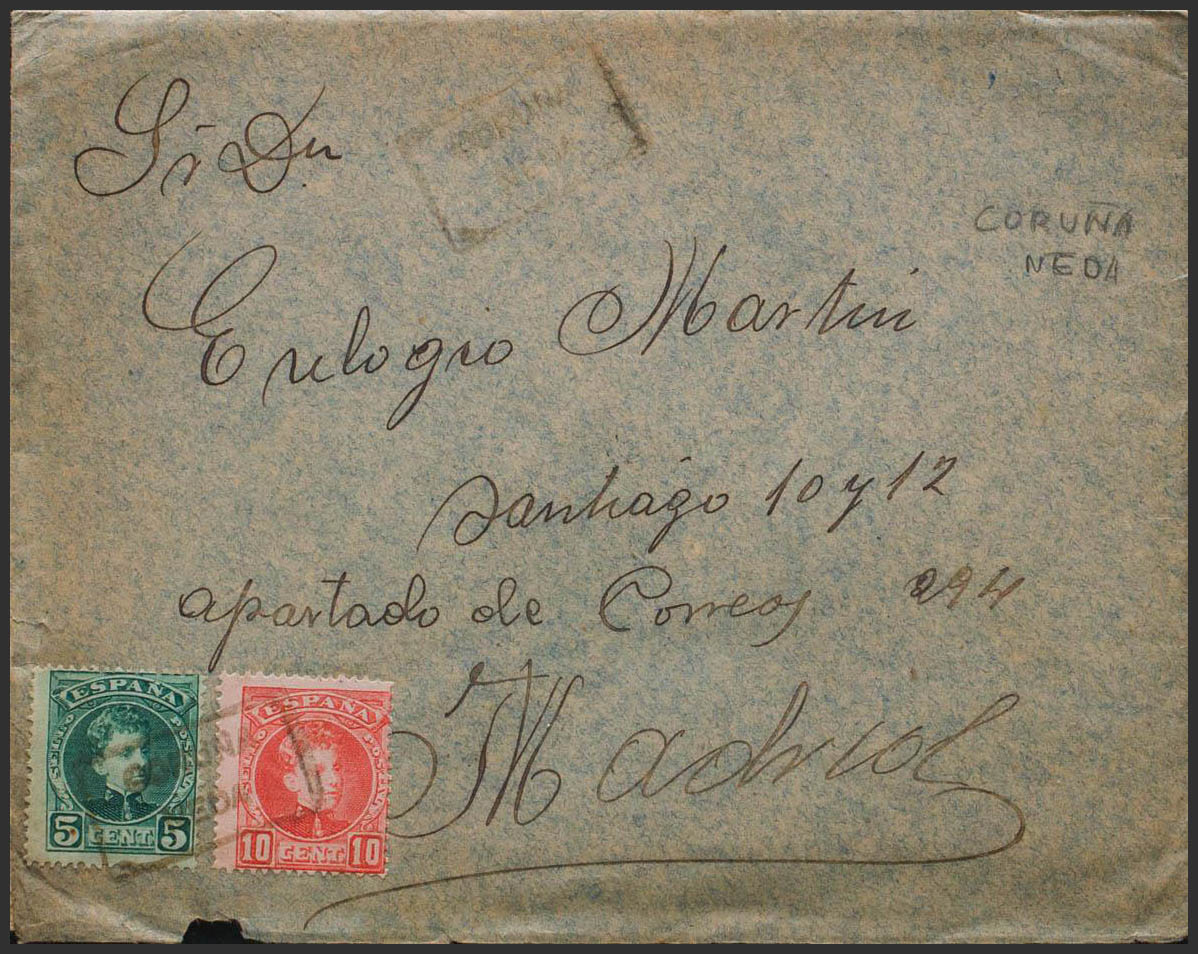 Sr Dn
CORUÑA
NEDA
Eulogio Martin
Santiago 10 y 12
apartado de Correos 294
Madrid
ESPAÑA
SELLO POSTAL
5 CENT 5
ESPAÑA
SELLO POSTAL
10 CENT 10